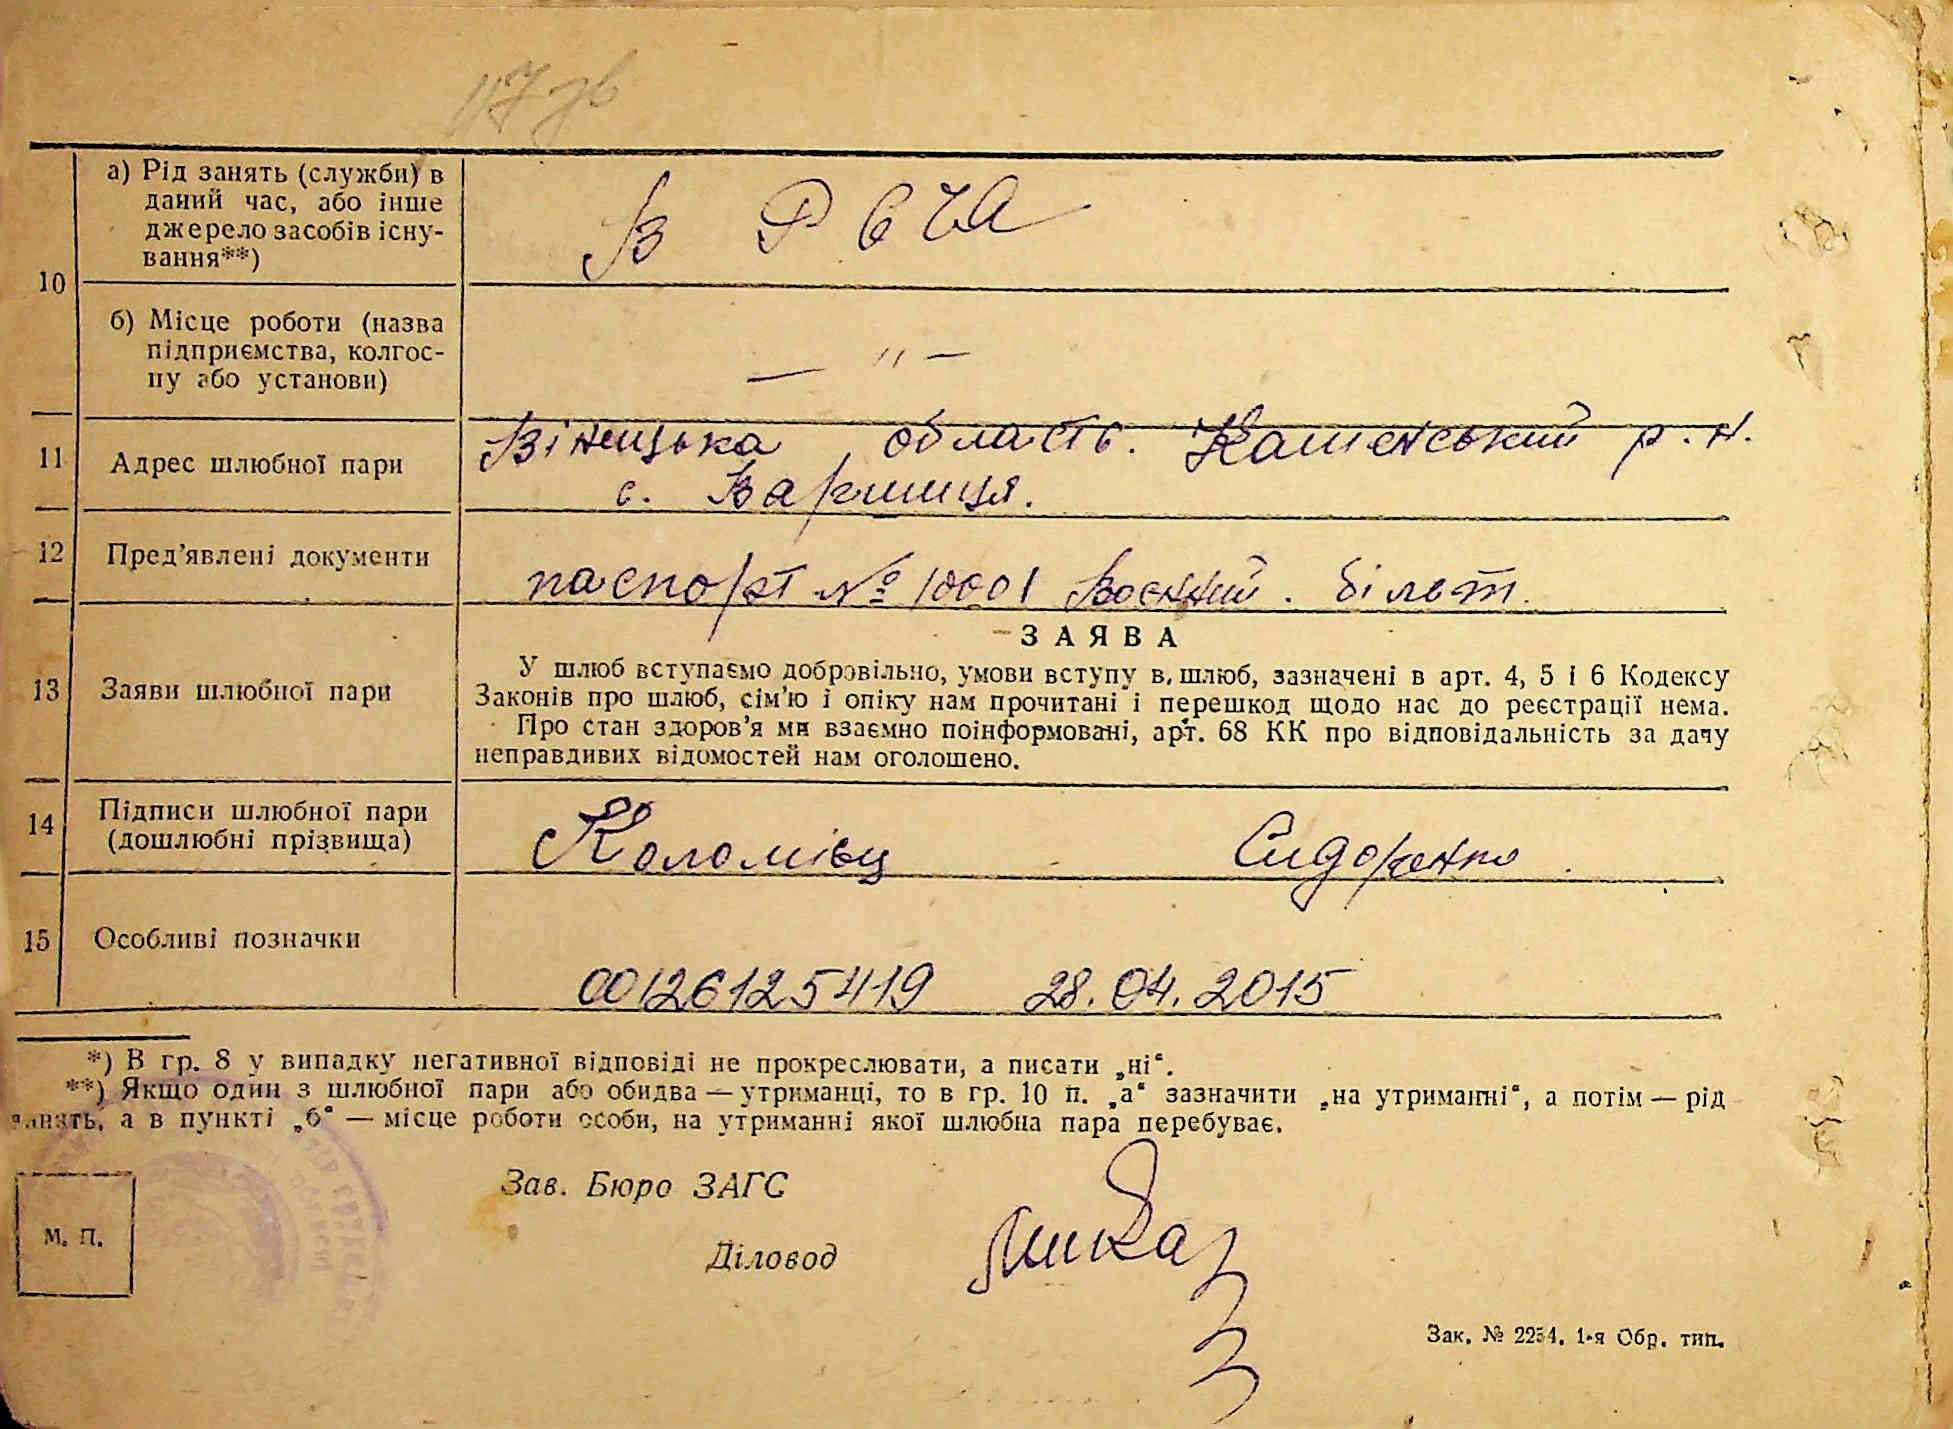 10
а) Рід занять (служби) в
даний час, або інше
джерело засобів існу-
вання**)
В РСЧА
б) Місце роботи (назва
підприємства, колгос-
пу або установи)
— " —
11
Адрес шлюбної пари
Вінницька область.
с.
12
Пред’явлені документи
паспорт № 10001 Воєнний. білет.
13
Заяви шлюбної пари
ЗАЯВА
У шлюб вступаємо добровільно, умови вступу в, шлюб, зазначені в арт. 4, 5 і 6 Кодексу
Законів про шлюб, сім’ю і опіку нам прочитані і перешкод щодо нас до реєстрації нема.
Про стан здоров’я ми взаємно поінформовані, арт. 68 КК про відповідальність за дачу
неправдивих відомостей нам оголошено.
14
Підписи шлюбної пари
(дошлюбні прізвища)
Коломієць Сидоренко
15
Особливі позначки
00126125419 28.04.2015
*) В гр. 8 у випадку негативної відповіді не прокреслювати, а писати „ні“.
**) Якщо один з шлюбної пари або обидва — утриманці, то в гр. 10 п. „а“ зазначити „на утриманні“, а потім — рід
занять, а в пункті „б“ — місце роботи особи, на утриманні якої шлюбна пара перебуває.
М. П.
Зав. Бюро ЗАГС
Діловод
Зак. № 2254. 1-я Обр. тип.